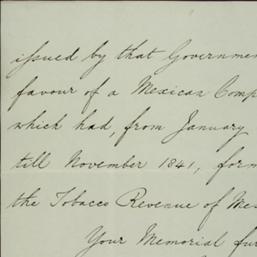 issued by that Governmen
favour of a Mexican Comp
which had, from January
till November 1841, form
the Tobacco Revenue of Me
Your Memorial fur